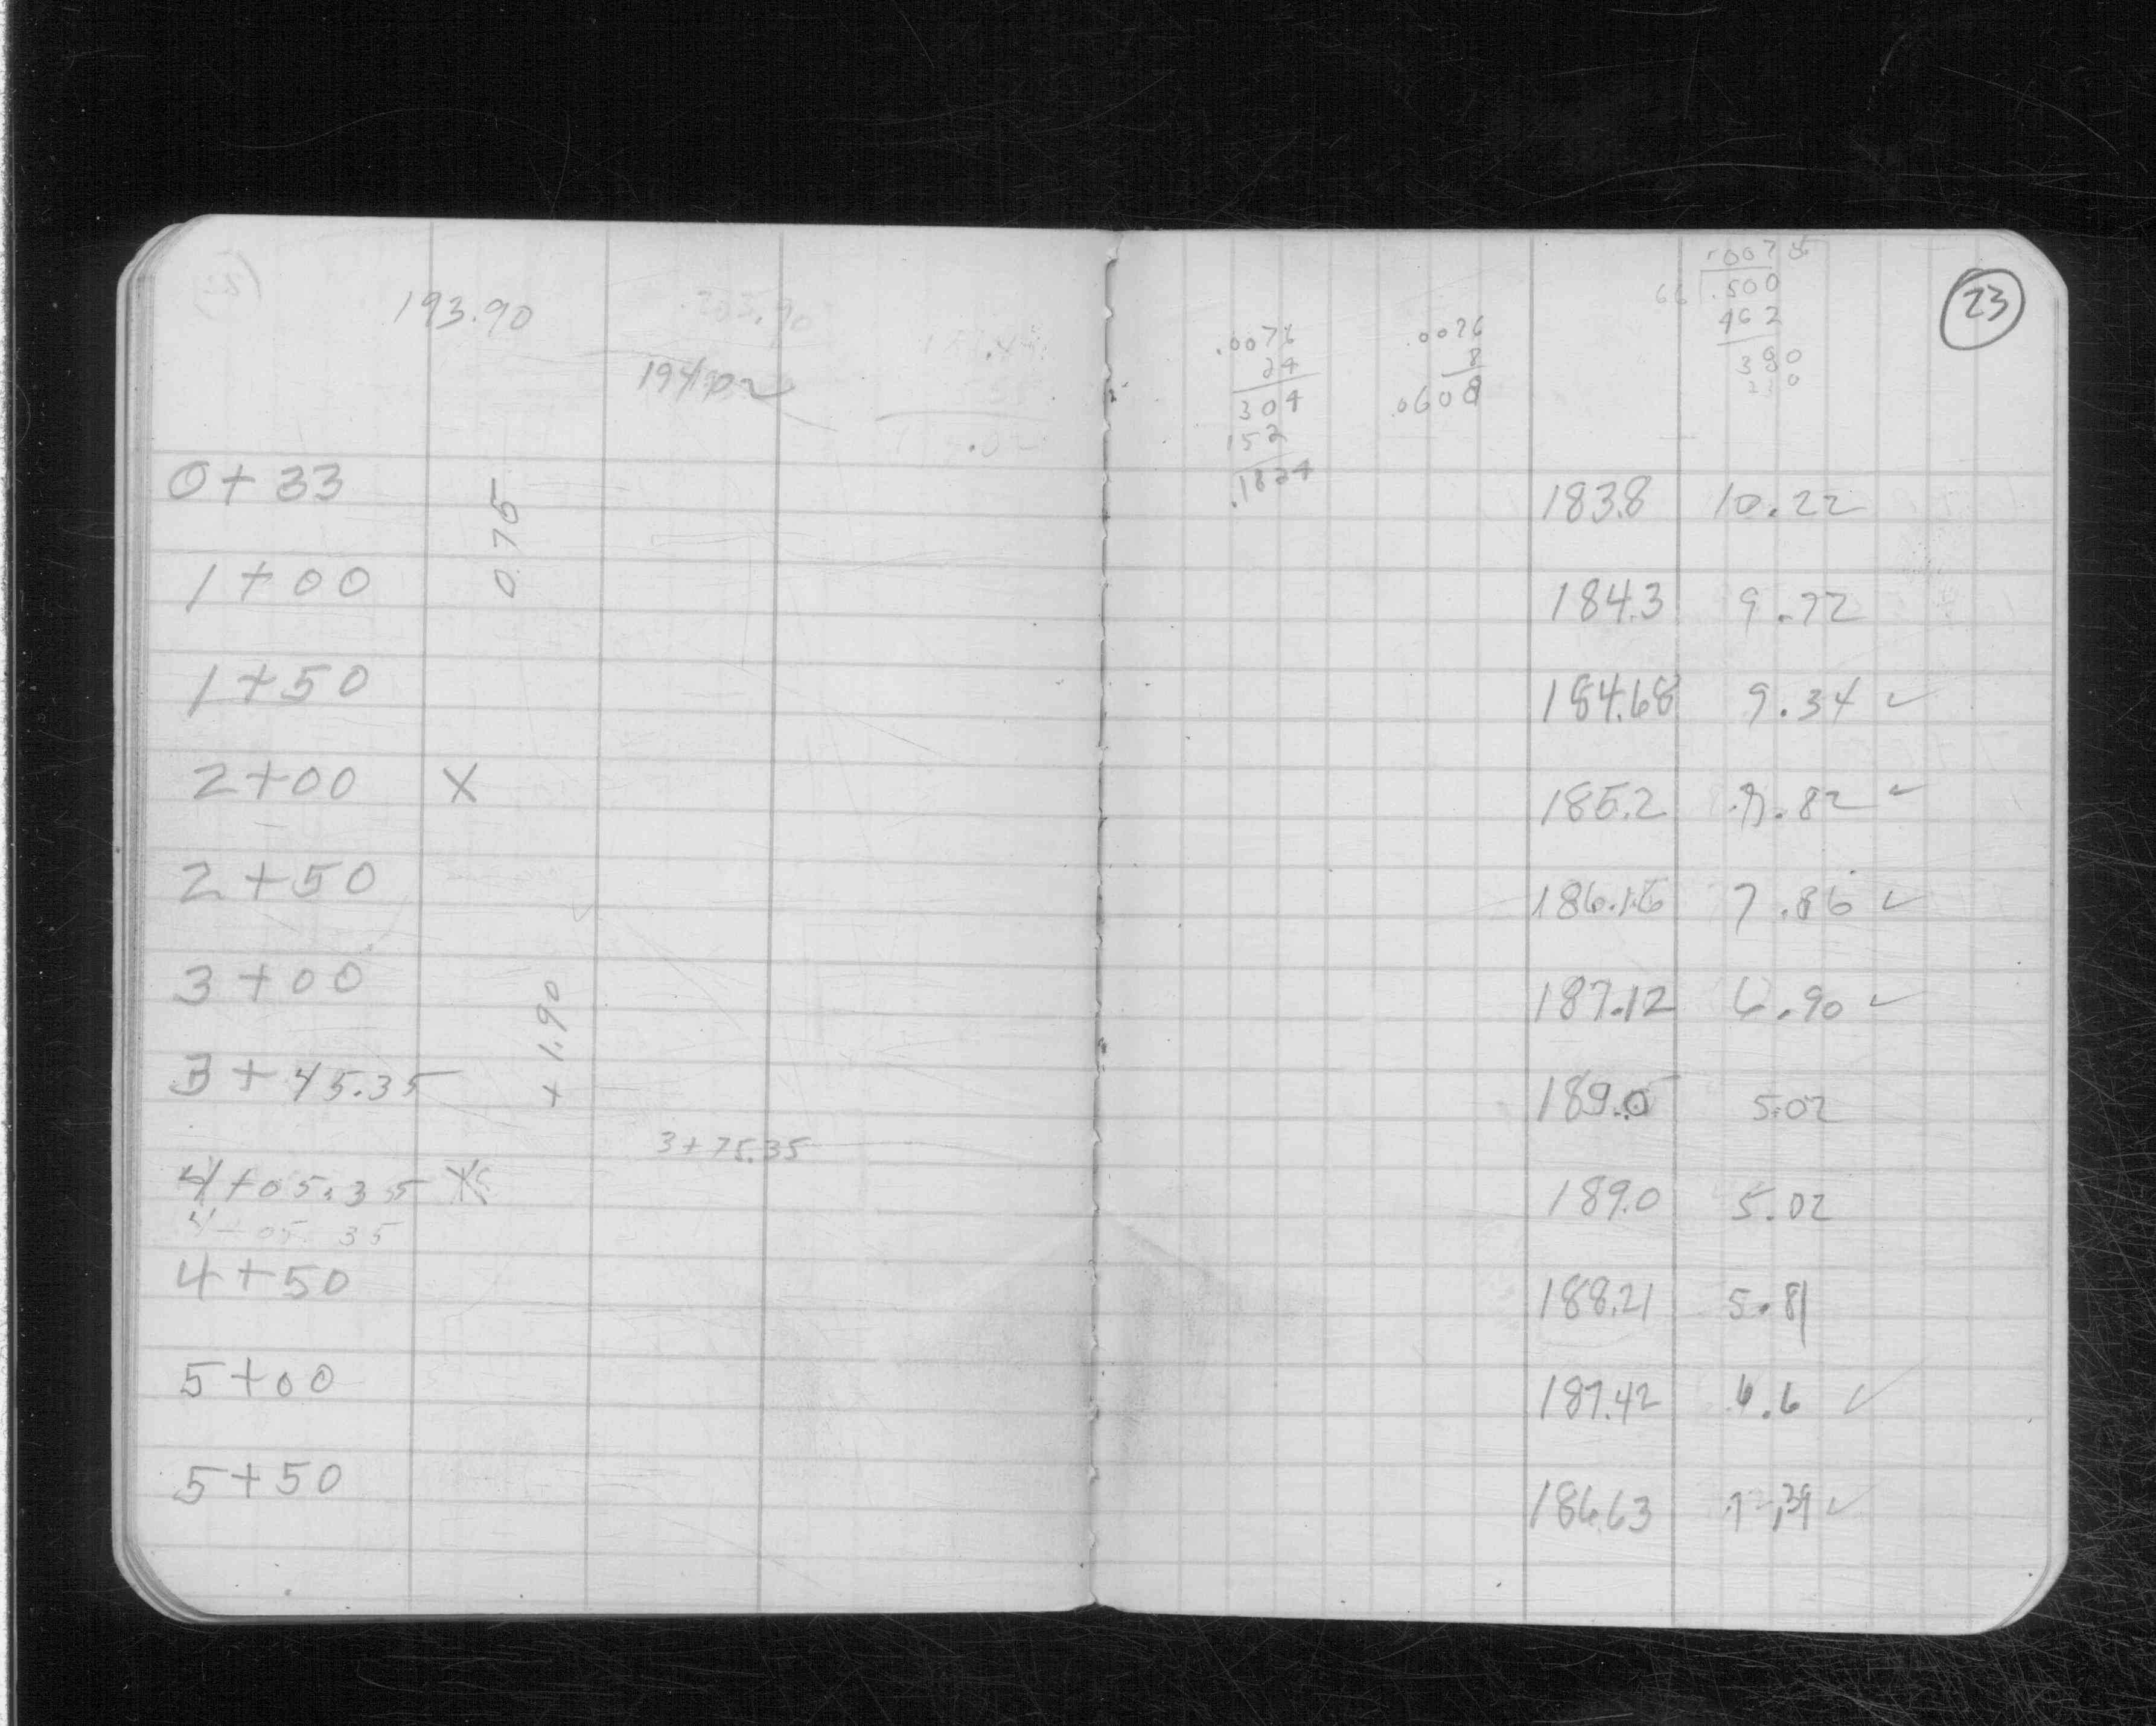 193.90
194.02
0+33
0.75
1+00
1+50
2+00 X
2+50
3+00
+ 1.90
3+45.35
3+75.35
4+05.35 X
4+05.35
4+50
5+00
5+50
23
.0076
24
304
152
.1824
.0076
8
.0608
66 .500
462
380
183.8 10.22
184.3 9.72
184.68 9.34 ✓
185.2 8.82 ✓
186.16 7.86 ✓
187.12 6.90 ✓
189.0 5.02
189.0 5.02
188.21 5.81
187.42 6.6 ✓
186.63 7.39 ✓